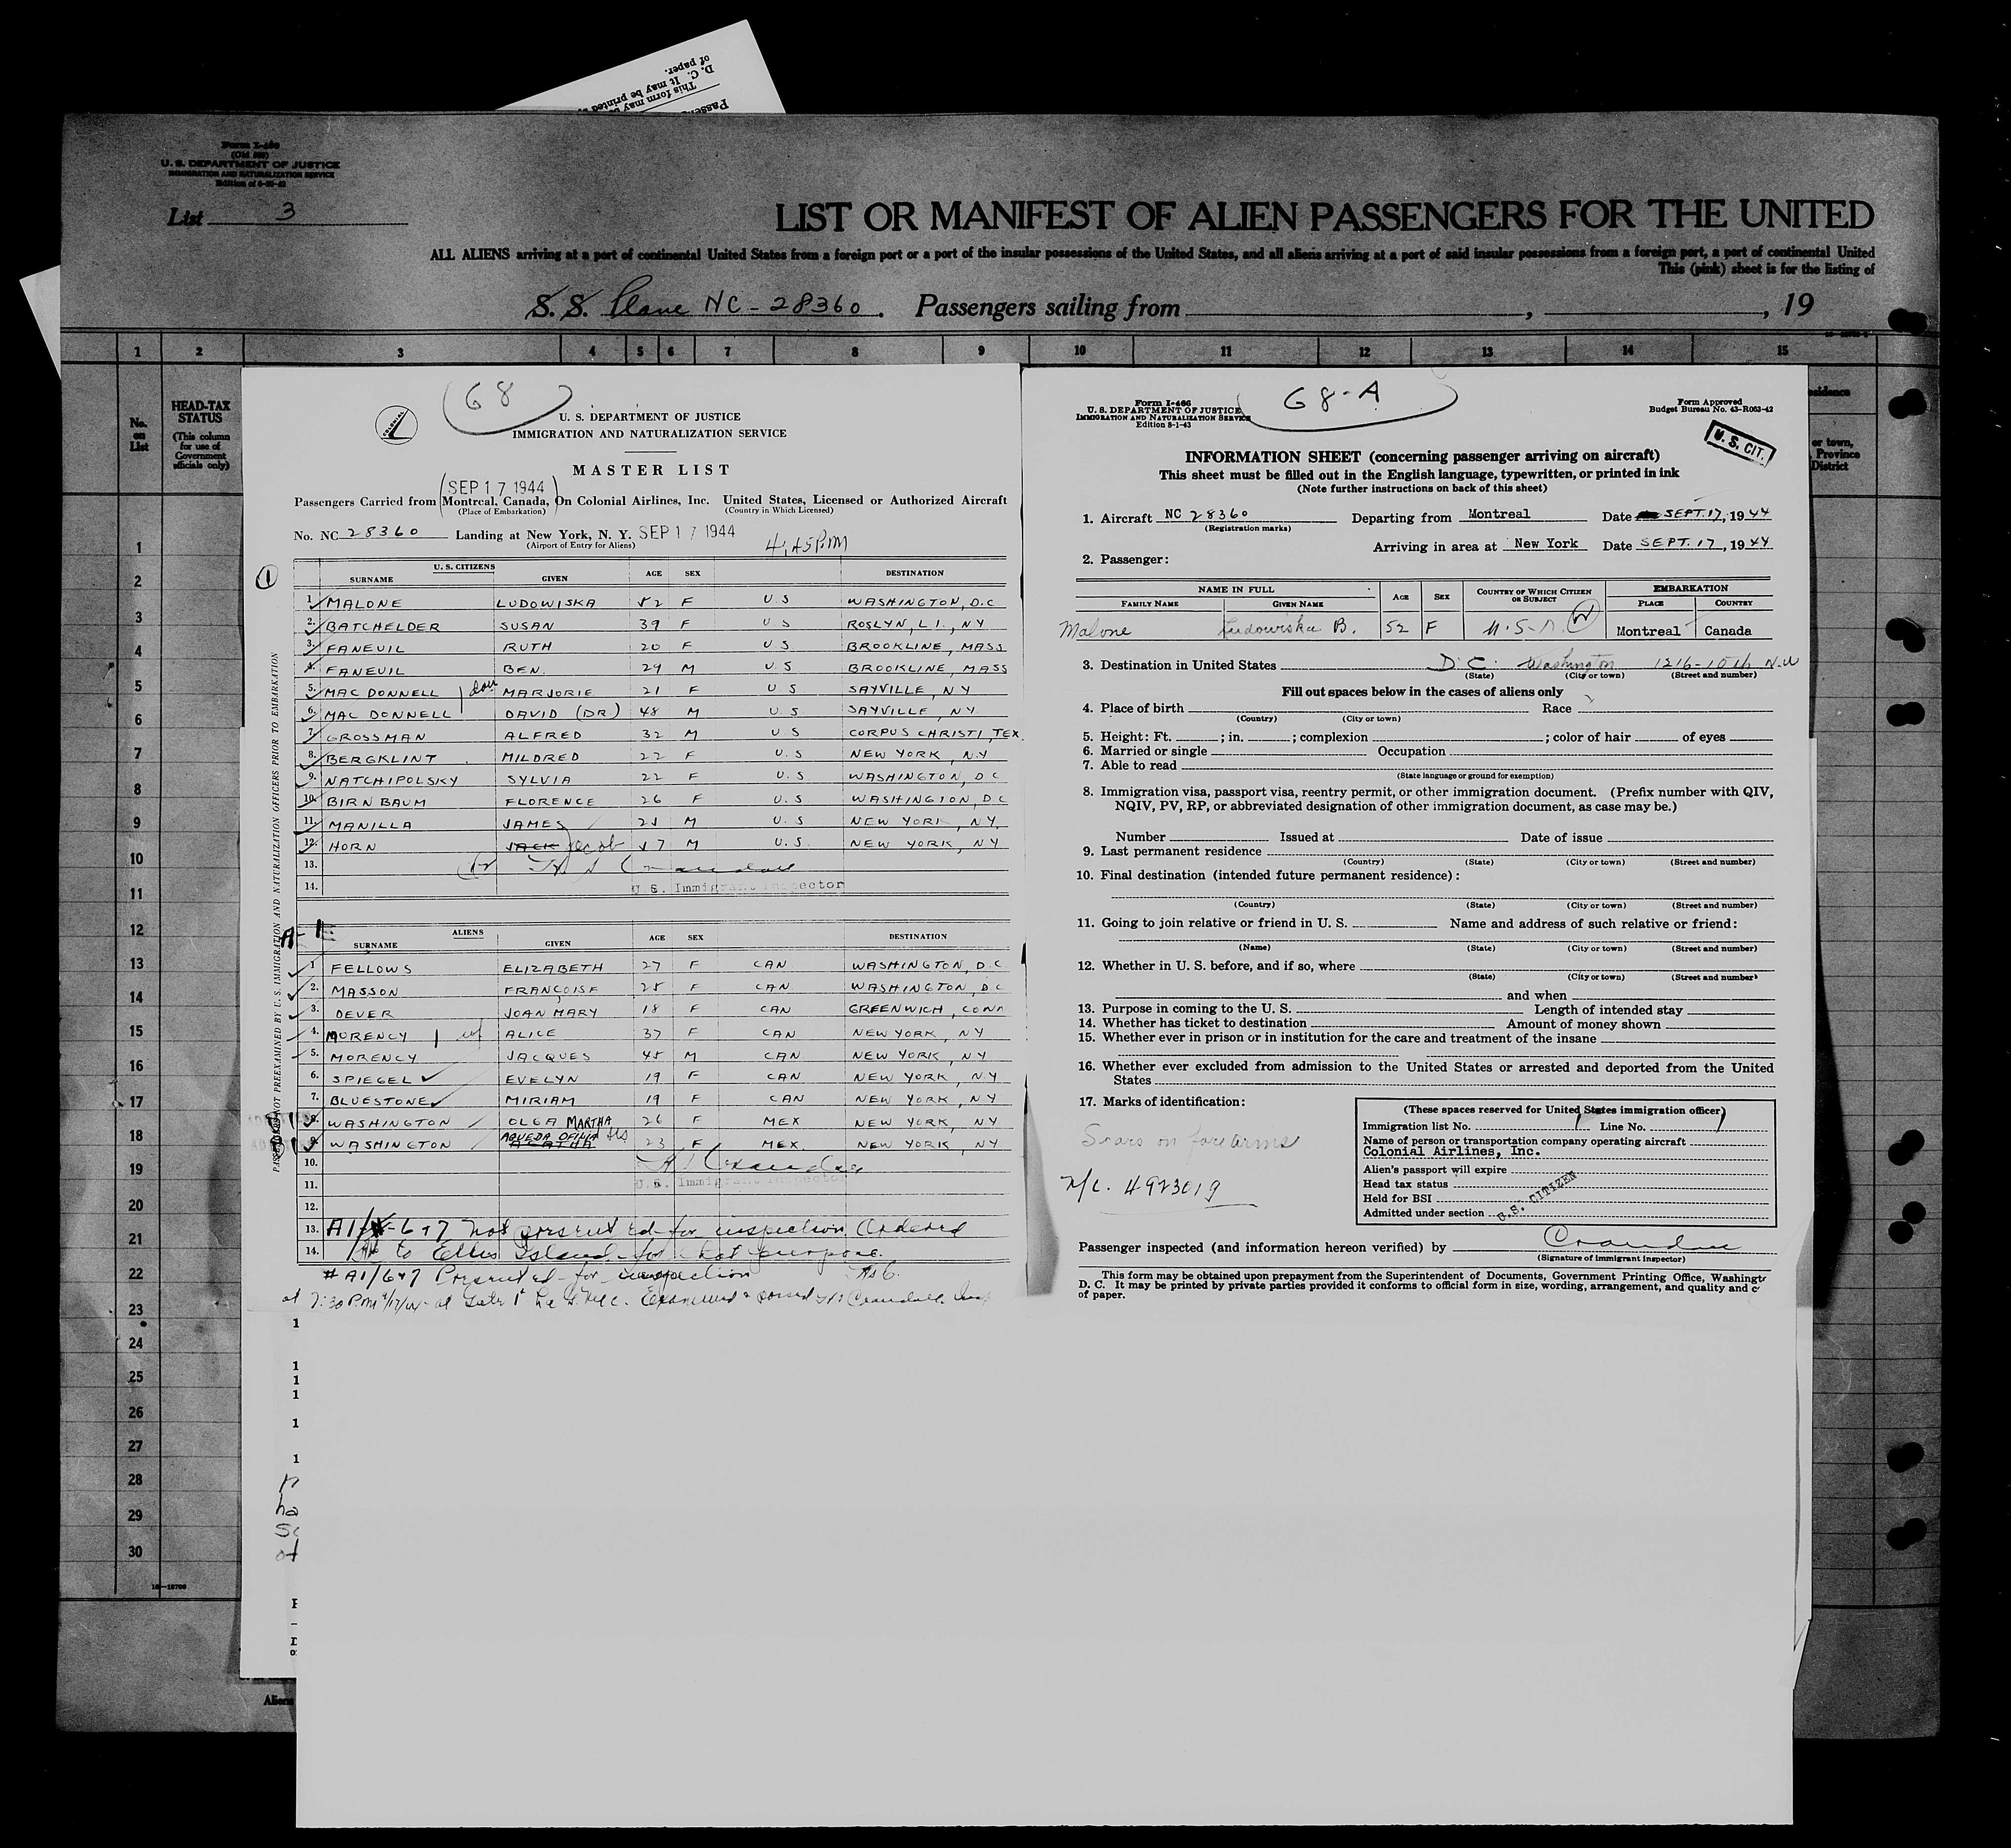 of paper.
D. C. It may be printed
This form may be
Passeng
Form I-460
U. S. DEPARTMENT OF JUSTICE
IMMIGRATION AND NATURALIZATION SERVICE
List 3
LIST OR MANIFEST OF ALIEN PASSENGERS FOR THE UNITED
ALL ALIENS arriving at a port of continental United States from a foreign port or a port of the insular possessions of the United States, and all aliens arriving at a port of said insular possessions from a foreign port, a port of continental United
This (pink) sheet is for the listing of
S. S. Plane NC-28360. Passengers sailing from , , 19
1 2 3 4 5 6 7 8 9 10 11 12 13 14 15
No. on List
HEAD-TAX STATUS
(This column for use of Government officials only)
sidence
or town, Province District
1
2
3
4
5
6
7
8
9
10
11
12
13
14
15
16
17
18
19
20
21
22
23
24
25
26
27
28
29
30
Aliens
68
COLONIAL
U. S. DEPARTMENT OF JUSTICE
IMMIGRATION AND NATURALIZATION SERVICE
MASTER LIST
SEP 17 1944
Passengers Carried from Montreal, Canada, On Colonial Airlines, Inc. United States, Licensed or Authorized Aircraft
(Place of Embarkation) (Country in Which Licensed)
No. NC 28360 Landing at New York, N. Y. SEP 17 1944
(Airport of Entry for Aliens) 4:45 PM
1
U. S. CITIZENS
SURNAME GIVEN AGE SEX DESTINATION
1. MALONE LUDOWISKA 52 F U.S WASHINGTON, D.C
2. BATCHELDER SUSAN 39 F U S ROSLYN, L.I., NY
3. FANEUIL RUTH 20 F U S BROOKLINE, MASS
4. FANEUIL BEN. 29 M U S BROOKLINE, MASS
5. MAC DONNELL dau MARJORIE 21 F U S SAYVILLE, NY
6. MAC DONNELL DAVID (DR) 48 M U. S SAYVILLE, NY
7. GROSSMAN ALFRED 32 M U S CORPUS CHRISTI, TEX
8. BERGKLINT. MILDRED 22 F U.S NEW YORK, N.Y
9. NATCHIPOLSKY SYLVIA 22 F U.S WASHINGTON, D C
10. BIRNBAUM FLORENCE 26 F U.S WASHINGTON, D C
11. MANILLA JAMES M U.S NEW YORK, NY
12. HORN JACK Jacob 57 M U.S. NEW YORK, NY
13.
14. U. S. Immigrant Inspector
PASSENGERS NOT PREEXAMINED BY U. S. IMMIGRATION AND NATURALIZATION OFFICERS PRIOR TO EMBARKATION
A-1
ALIENS
SURNAME GIVEN AGE SEX DESTINATION
1 FELLOWS ELIZABETH 27 F CAN WASHINGTON, D.C
2. MASSON FRANÇOISE 25 F CAN WASHINGTON, D C
3. DEVER JOAN MARY 18 F CAN GREENWICH, CONN
4. MORENCY wf ALICE 37 F CAN NEW YORK, NY
5. MORENCY JACQUES 45 M CAN NEW YORK, NY
6. SPIEGEL EVELYN 19 F CAN NEW YORK, N.Y
7. BLUESTONE MIRIAM 19 F CAN NEW YORK, NY
8. WASHINGTON OLGA MARTHA 26 F MEX NEW YORK, NY
9. WASHINGTON AQUEDA OFILIA AGATHA 23 F MEX. NEW YORK, NY
10.
11. U.S. Immigrant Inspector
12.
13. A1/-6+7 Not presented for inspection Ordered
14. to Ellis Island for that purpose.
# A1/6+7 Presented for inspection
at 7:30 PM 9/17/44 at Examined & passed Crandall
68-A
Form I-466
U. S. DEPARTMENT OF JUSTICE
IMMIGRATION AND NATURALIZATION SERVICE
Edition 8-1-43
Form Approved
Budget Bureau No. 43-R063-42
U. S. CIT.
INFORMATION SHEET (concerning passenger arriving on aircraft)
This sheet must be filled out in the English language, typewritten, or printed in ink
(Note further instructions on back of this sheet)
1. Aircraft NC 28360 Departing from Montreal Date SEPT. 17, 1944
(Registration marks)
Arriving in area at New York Date SEPT. 17, 1944
2. Passenger:
NAME IN FULL AGE SEX COUNTRY OF WHICH CITIZEN OR SUBJECT EMBARKATION
FAMILY NAME GIVEN NAME PLACE COUNTRY
Malone Ludowiska B. 52 F U.S.A. Montreal Canada
3. Destination in United States D.C. Washington 1216-10th N.W
(State) (City or town) (Street and number)
Fill out spaces below in the cases of aliens only
4. Place of birth Race
(Country) (City or town)
5. Height: Ft. ; in. ; complexion ; color of hair of eyes
6. Married or single Occupation
7. Able to read
(State language or ground for exemption)
8. Immigration visa, passport visa, reentry permit, or other immigration document. (Prefix number with QIV,
NQIV, PV, RP, or abbreviated designation of other immigration document, as case may be.)
Number Issued at Date of issue
9. Last permanent residence
(Country) (State) (City or town) (Street and number)
10. Final destination (intended future permanent residence):
(Country) (State) (City or town) (Street and number)
11. Going to join relative or friend in U. S. Name and address of such relative or friend:
(Name) (State) (City or town) (Street and number)
12. Whether in U. S. before, and if so, where
(State) (City or town) (Street and number)
and when
13. Purpose in coming to the U. S. Length of intended stay
14. Whether has ticket to destination Amount of money shown
15. Whether ever in prison or in institution for the care and treatment of the insane
16. Whether ever excluded from admission to the United States or arrested and deported from the United
States
17. Marks of identification:
Scars on forearms
N/C. 4923019
(These spaces reserved for United States immigration officer)
Immigration list No. 1 Line No. 1
Name of person or transportation company operating aircraft
Colonial Airlines, Inc.
Alien's passport will expire
Head tax status
Held for BSI
Admitted under section U.S. CITIZEN
Passenger inspected (and information hereon verified) by Crandall
(Signature of immigrant inspector)
This form may be obtained upon prepayment from the Superintendent of Documents, Government Printing Office, Washingt
D. C. It may be printed by private parties provided it conforms to official form in size, wording, arrangement, and quality and c
of paper.